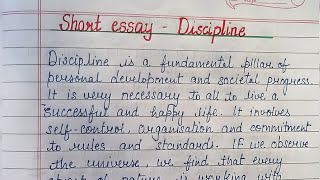 Short essay - Discipline
Discipline is a fundamental pillar of
personal development and societal progress.
It is very necessary to all to live a
successful and happy life. It involves
self-control, organisation and commitment
to rules and standards. If we observe
the universe, we find that every
object of nature is working with